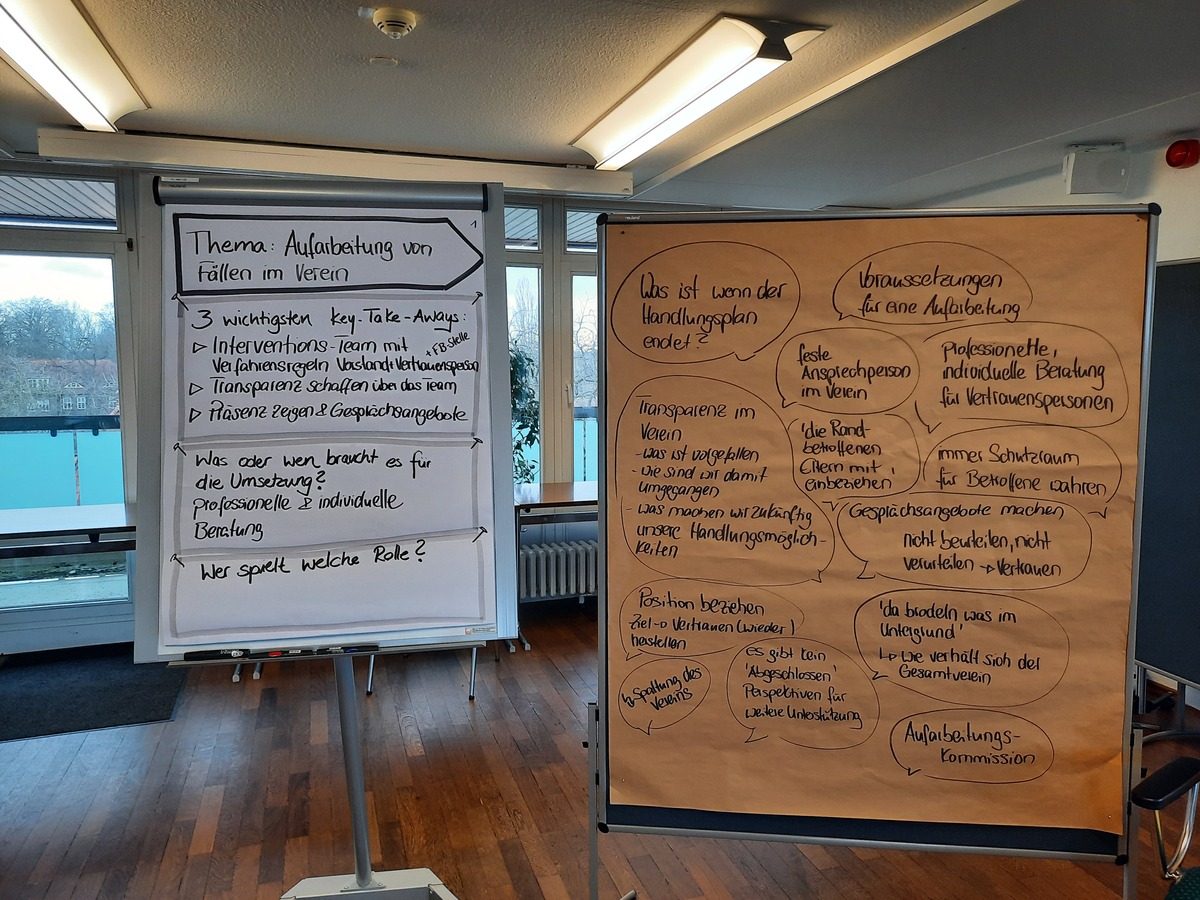 1
Thema: Aufarbeitung von
Fällen im Verein
3 wichtigsten Key-Take-Aways:
▷ Interventions-Team mit
+FB-Stelle
Verfahrensregeln Vorstand+Vertrauensperson
▷ Transparenz schaffen über das Team
▷ Präsenz zeigen & Gesprächsangebote
Was oder wen braucht es für
die Umsetzung?
professionelle & individuelle
Beratung
Wer spielt welche Rolle?
Was ist wenn der
Handlungsplan
endet?
Voraussetzungen
für eine Aufarbeitung
feste
Ansprechperson
im Verein
professionelle,
individuelle Beratung
für Vertrauenspersonen
Transparenz im
Verein
- was ist vorgefallen
- wie sind wir damit
umgegangen
- was machen wir zukünftig
unsere Handlungsmöglich-
keiten
'die Rand-
betroffenen
Eltern mit'
einbeziehen
immer Schutzraum
für Betroffene wahren
Gesprächsangebote machen
nicht beurteilen, nicht
verurteilen → Vertrauen
Position beziehen
Ziel → Vertrauen (wieder)
herstellen
↳ Spaltung des
Vereins
es gibt kein
'Abgeschlossen'
Perspektiven für
weitere Unterstützung
'da brodeln was im
Untergrund'
↳ wie verhält sich der
Gesamtverein
Aufarbeitungs-
kommission